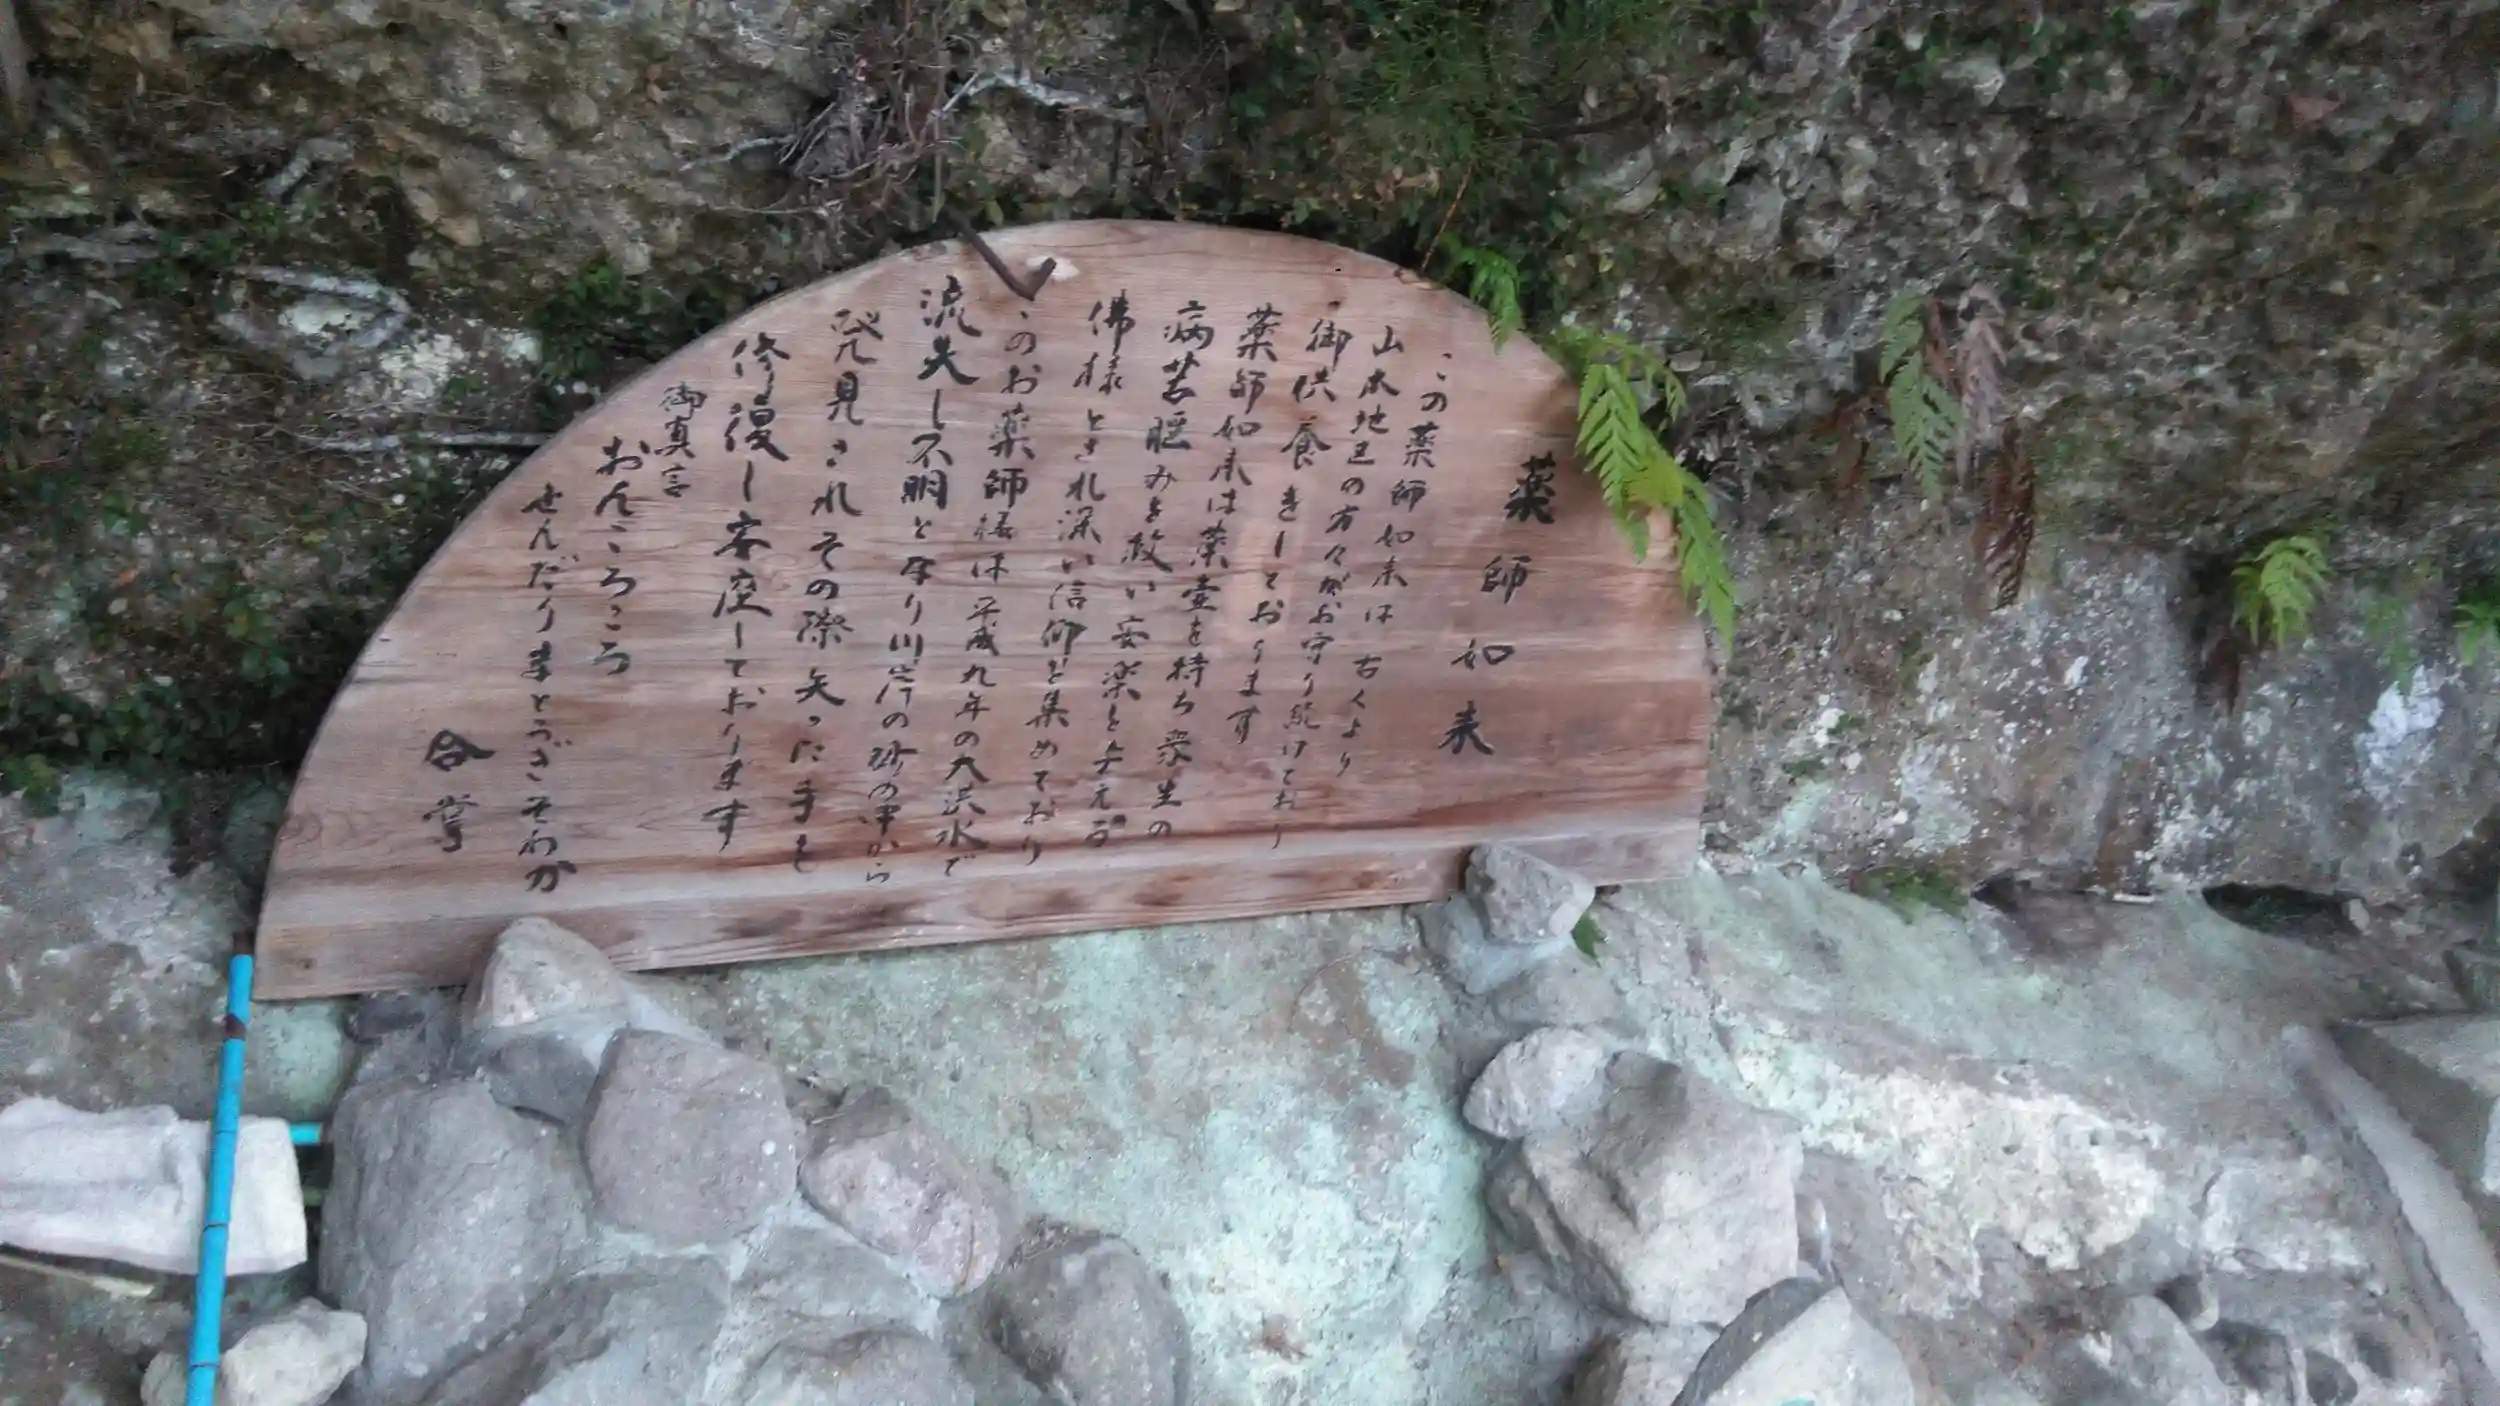 薬師如来
この薬師如来は古くより
山本地区の方々がお守り続けており
御供養をしております
薬師如来は薬壷を持ち衆生の
病苦悩みを救い安楽を与える
佛様とされ深い信仰を集めており
このお薬師様は平成九年の大洪水で
流失し不明となり川岸の砂の中から
発見されその際失った手を
修復し安座しております
御真言
おんころころ
せんだりまとうぎそわか
合掌